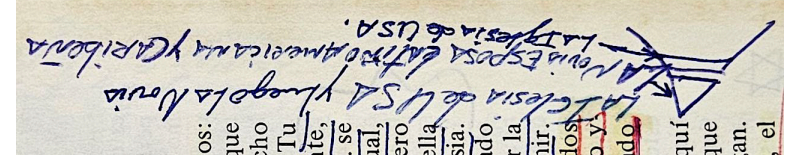 LA Iglesia de USA y luego La Novia
LA Novia Esposa Latino Americana y Caribeña
LA Iglesia de USA.
os:
que
cho
Tu
nte,
se
ual,
ero
ella
sia.
ado
r la
nir.
dos
o y
ado
quí
que
gan.
, el